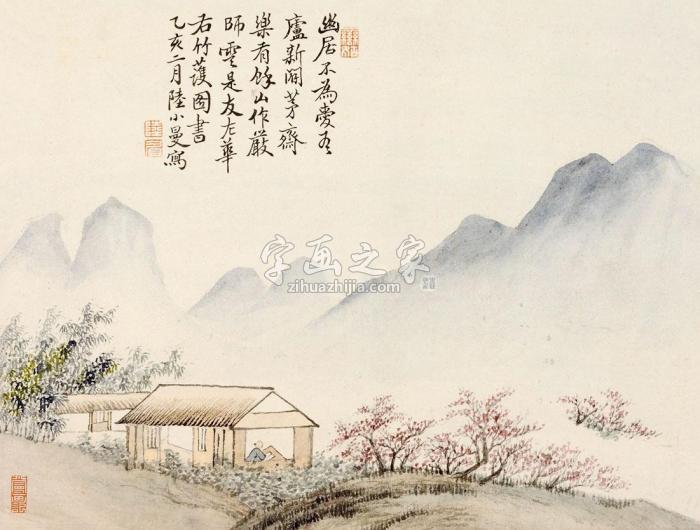 幽居不為愛吾
廬新開茅齋
樂有餘山作嚴
師雲是友左華
右竹護圖書
乙亥二月陸小曼寫
字画之家
zihuazhijia.com